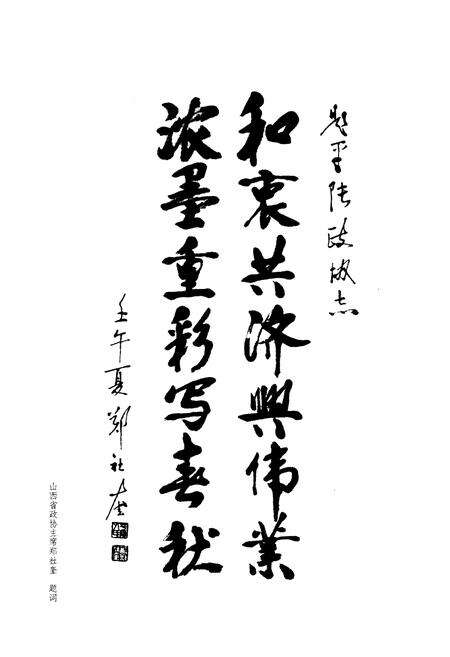 题平陆政协志
和衷共济興伟業
浓墨重彩写春秋
壬午夏 郑社奎
山西省政协主席郑社奎 题词